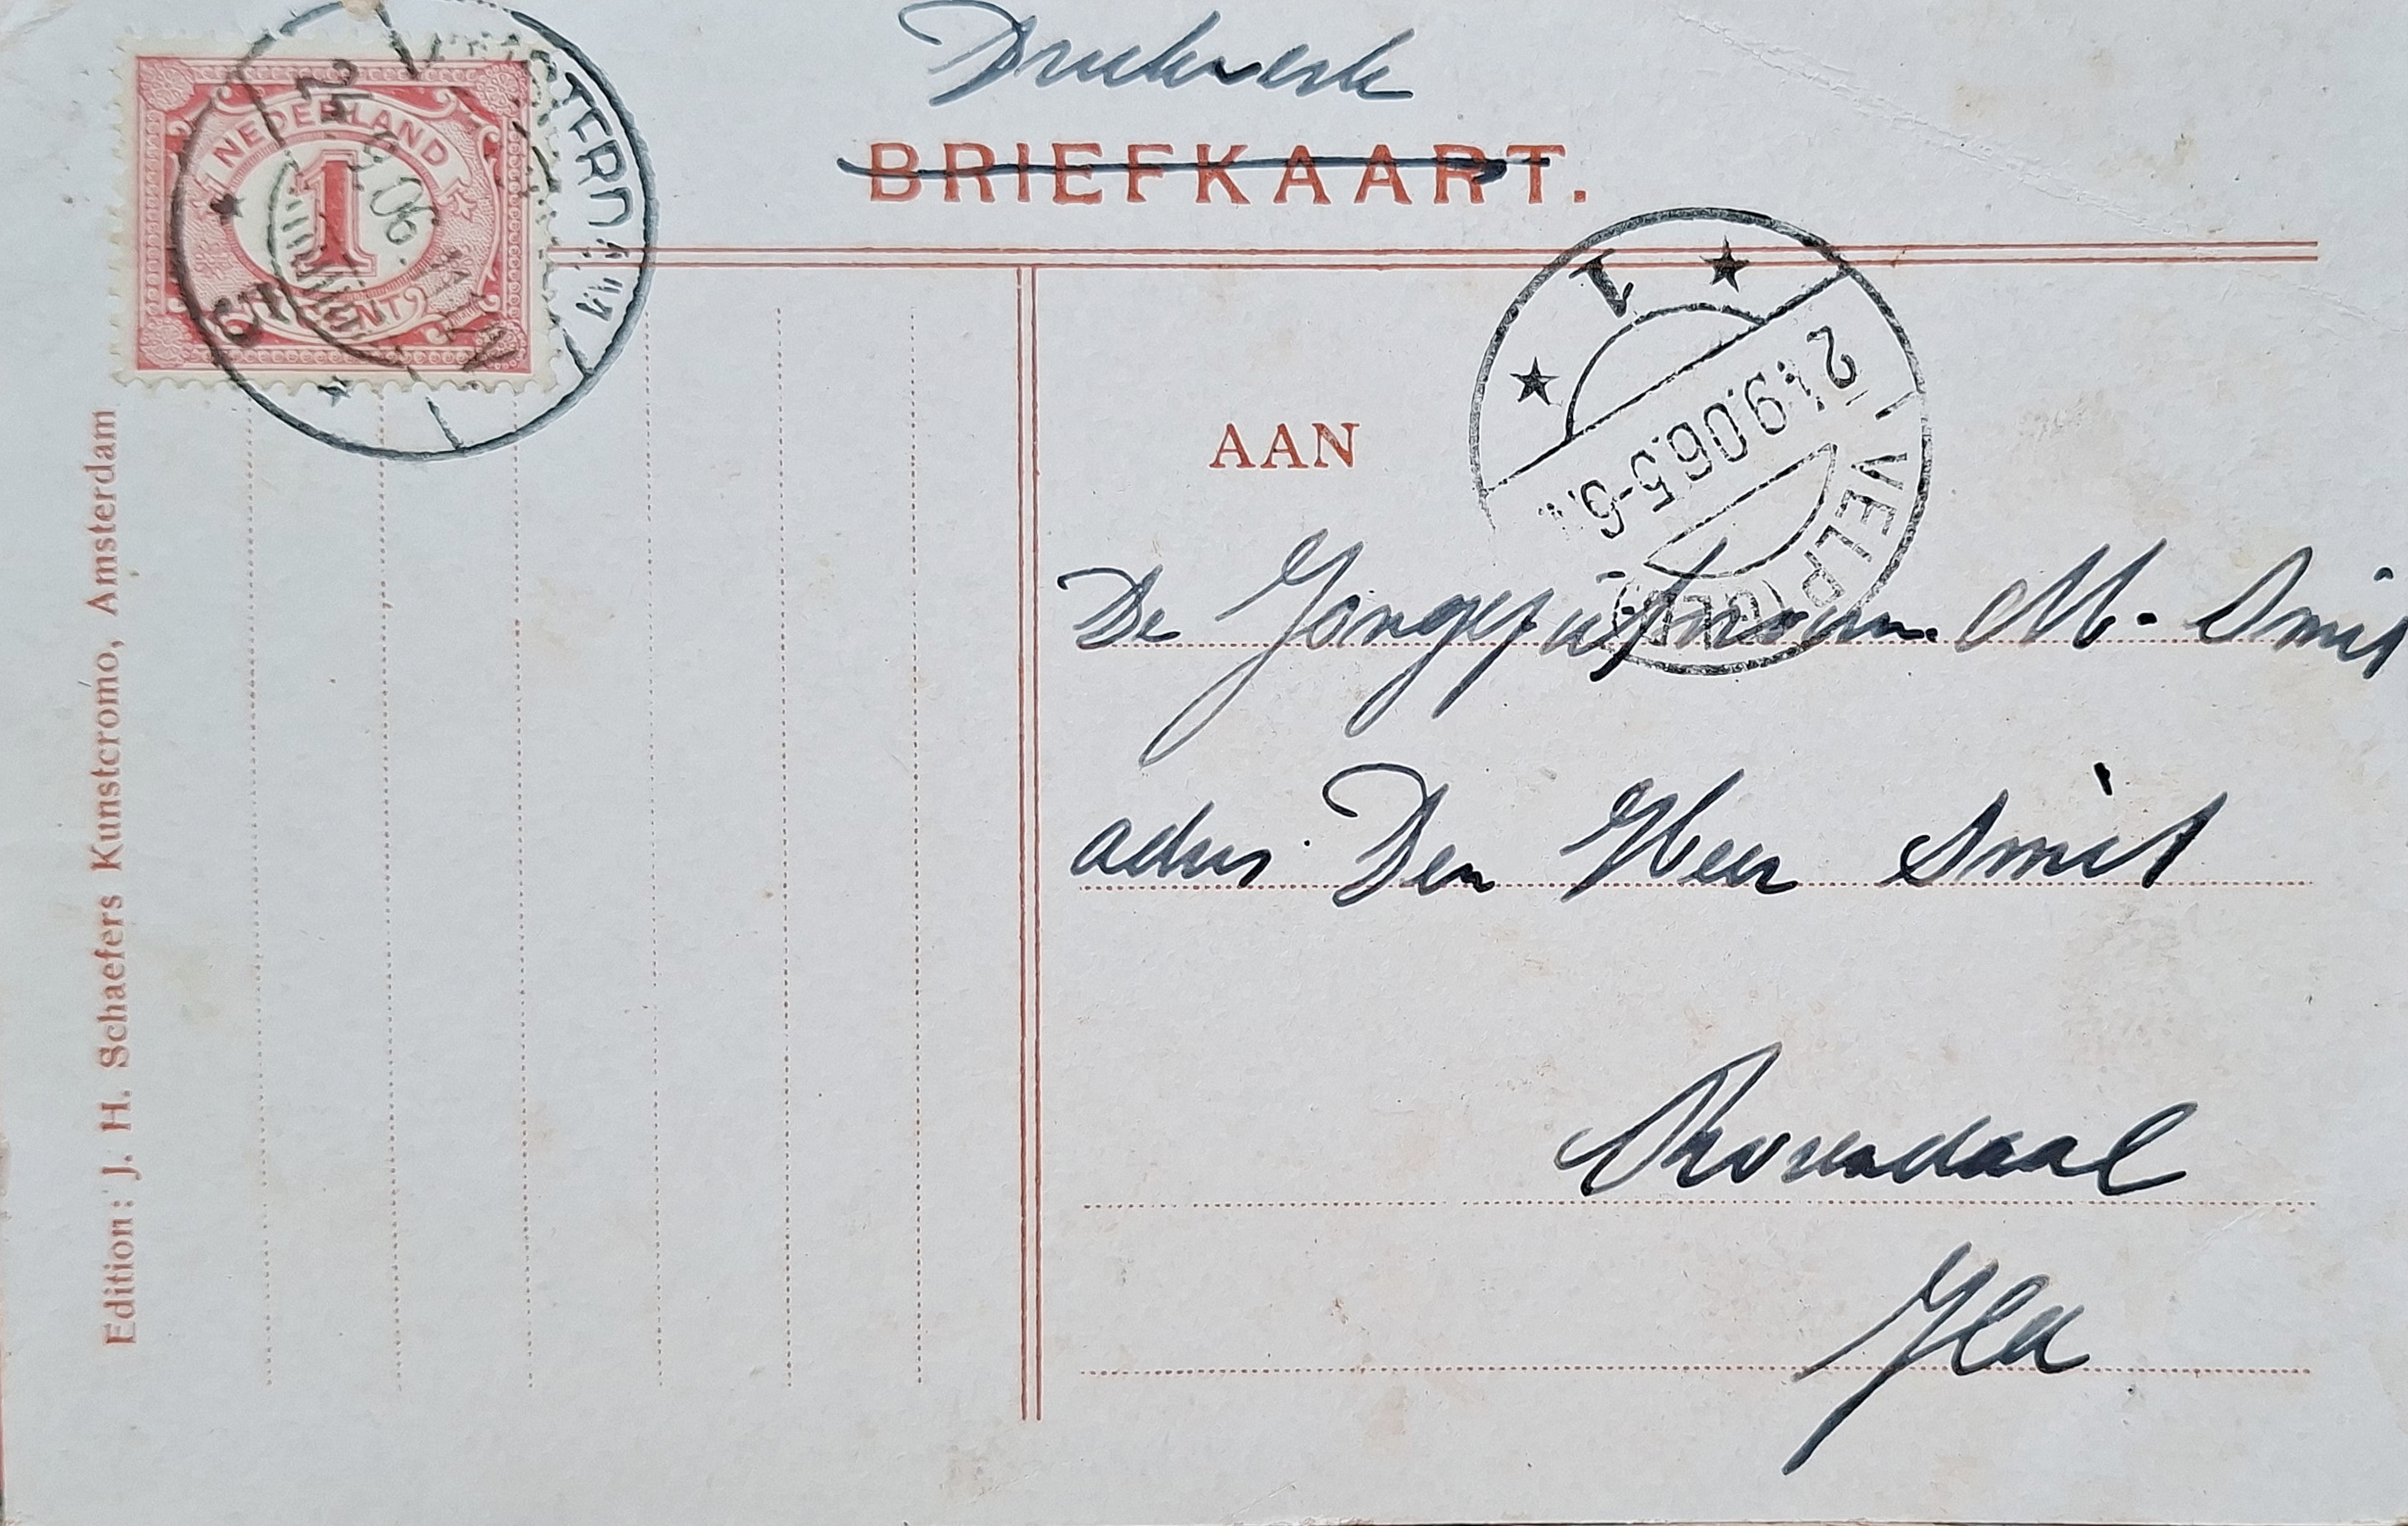 Drukwerk
BRIEFKAART.
NEDERLAND
1
CENT
24 9 06
5
1
VELP (GLD)
24.9.06.5-6
AAN
De Jongejufvrouw M. Smit
adres Den Heer Smit
Rosendaal
Gld
Edition: J. H. Schaefers Kunstcromo, Amsterdam